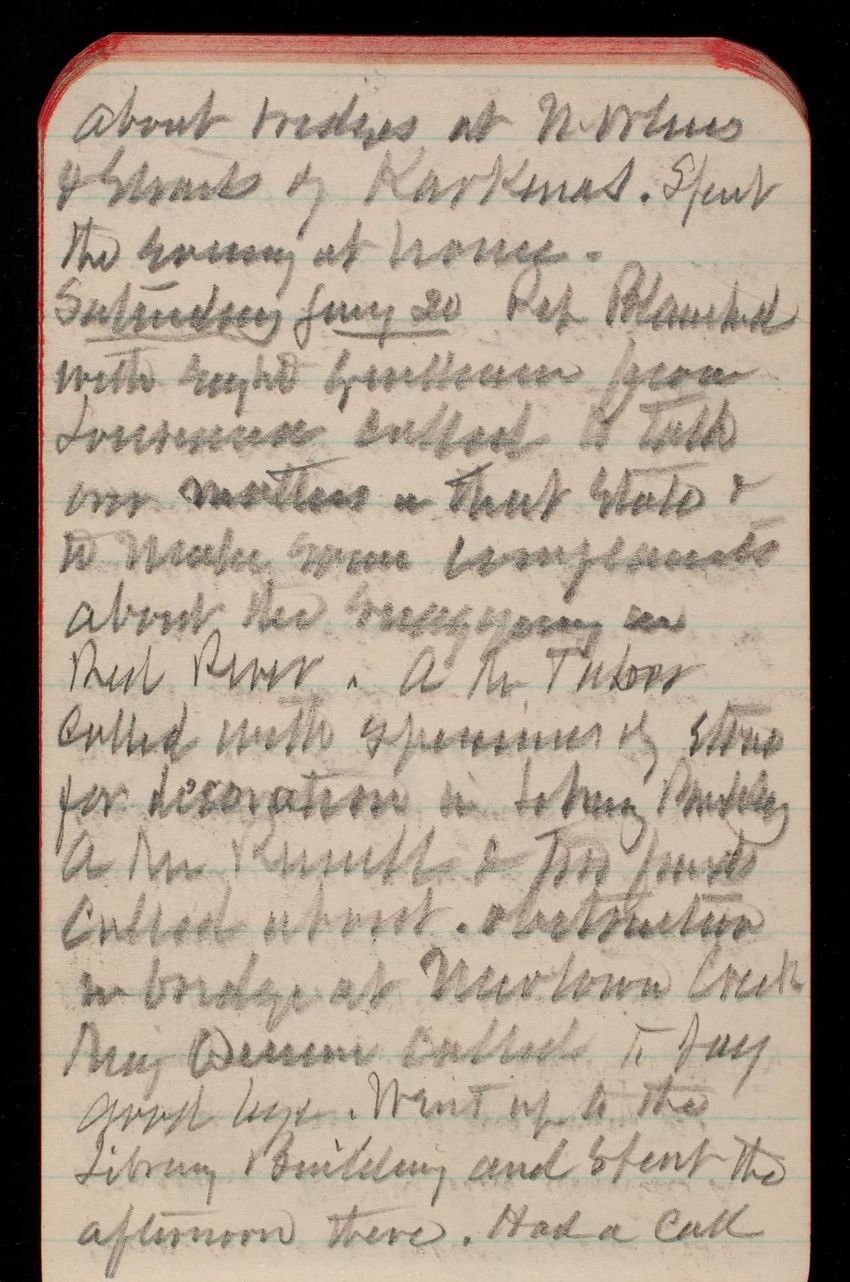 about bridges at N. Orleans
& Straits of Karkenas. Spent
the evening at home.
Saturday Jany 20 Rep Blanchard
with eight gentlemen from
Louisiana called to talk
over matters in that State &
to make some complaints
about the snagging in
Red River. A Mr Tabor
called with specimens of stone
for decoration in Library Buildg
A Mr & two
called about obstruction
in bridge at Newtown Creek
Maj called to say
good bye. Went up to the
Library Building and spent the
afternoon there. Had a call